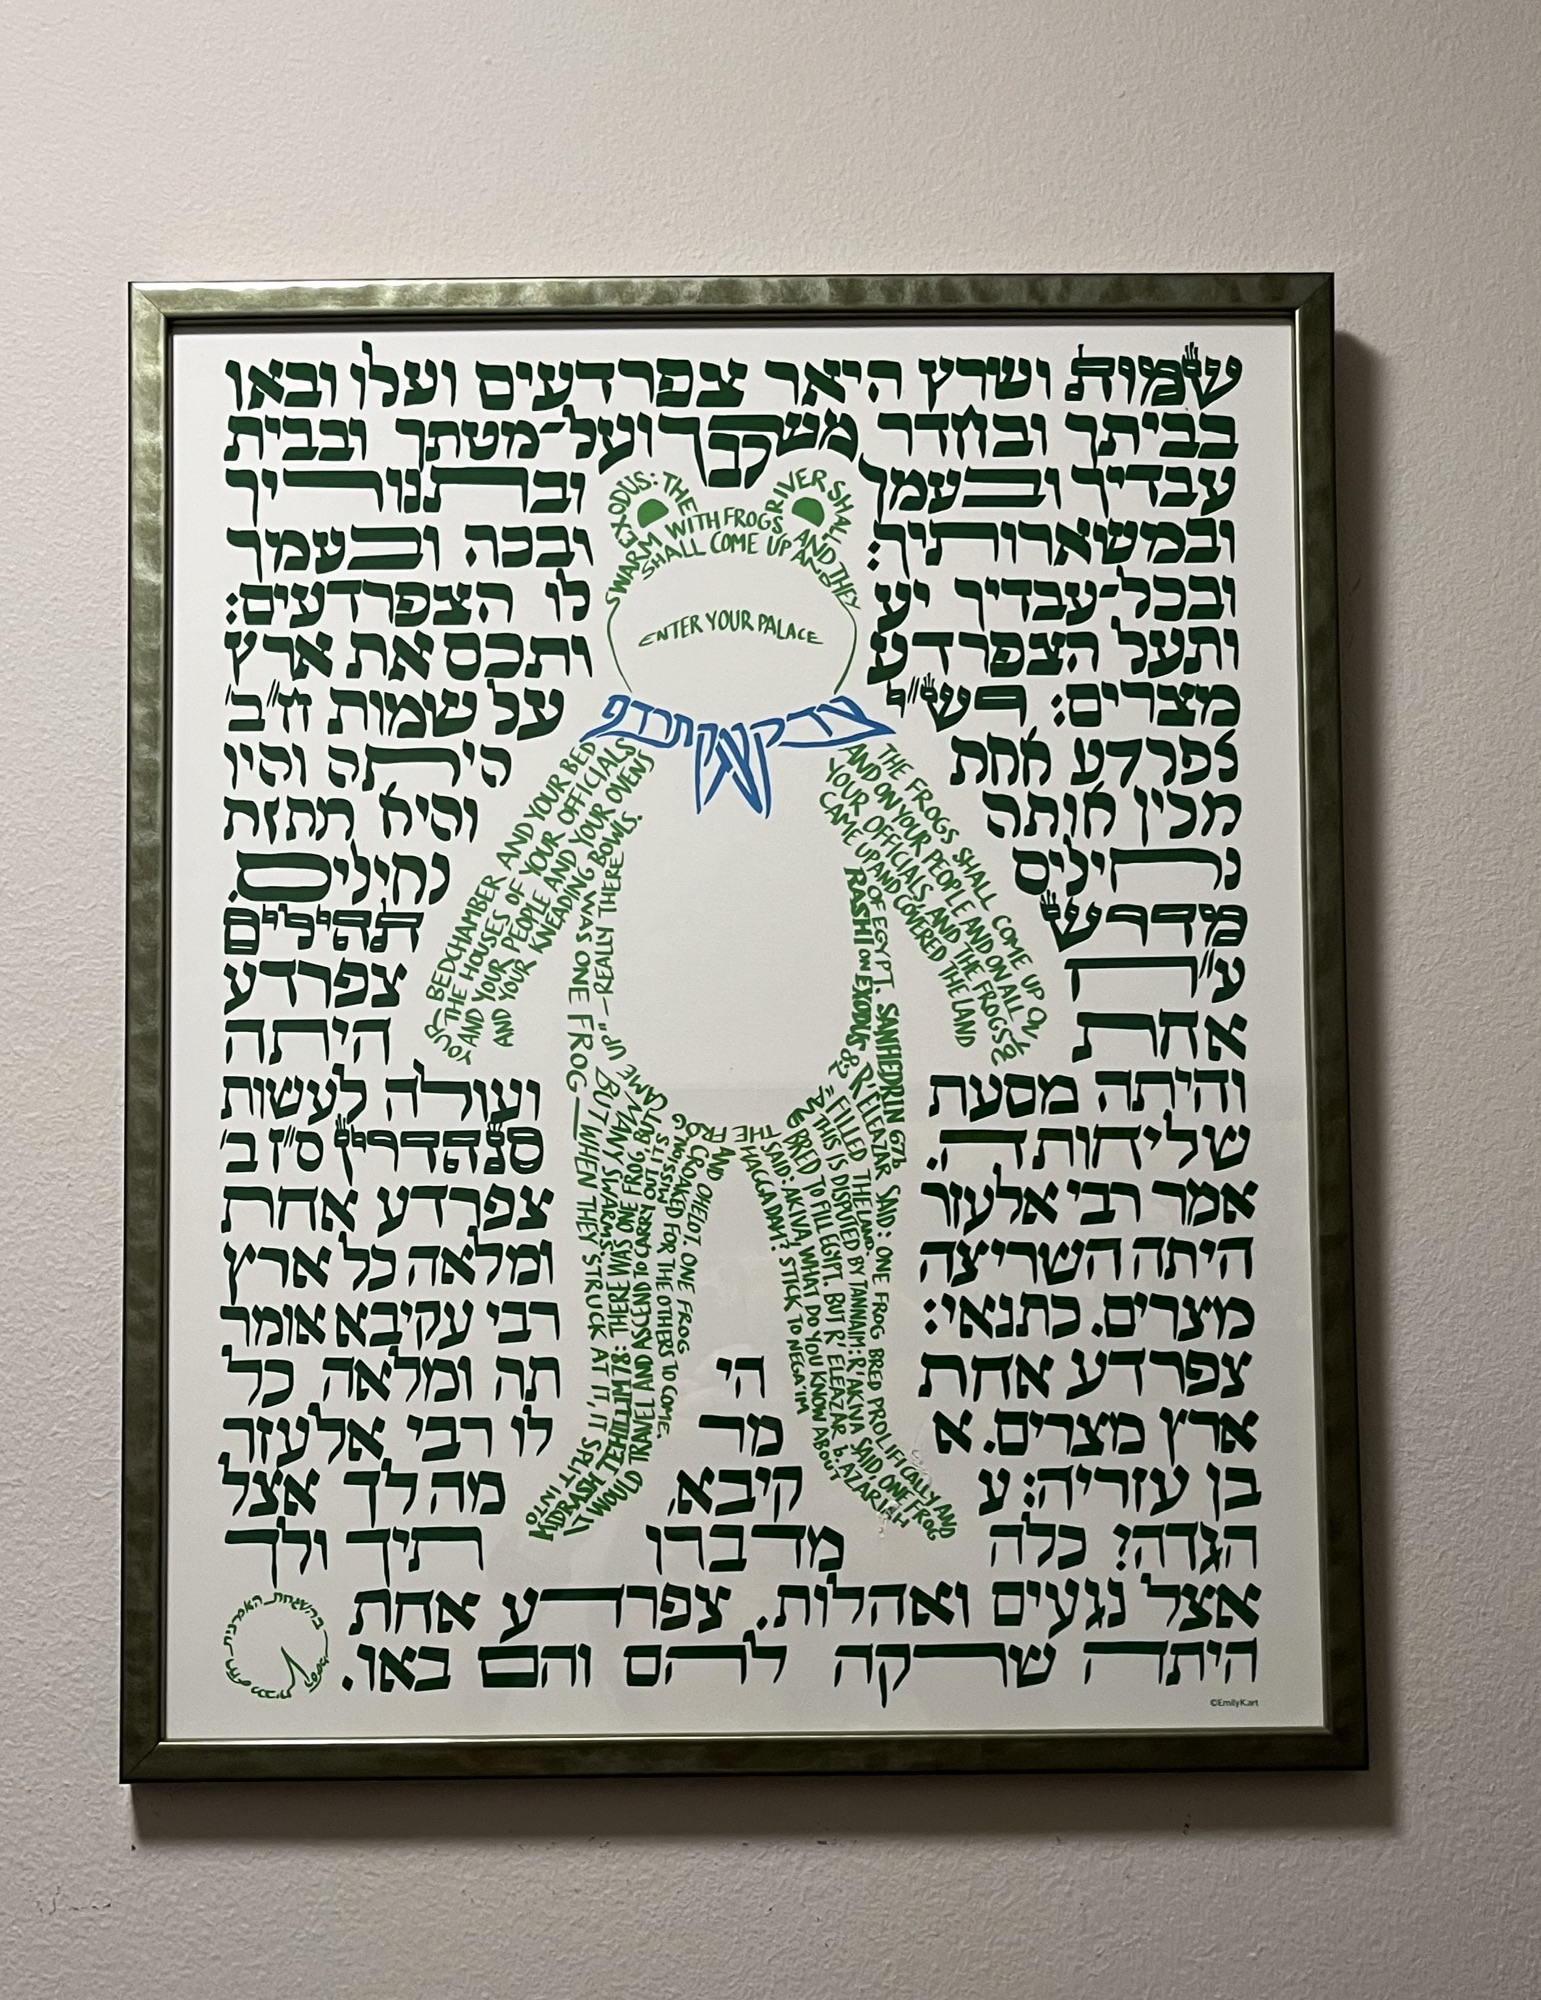 שמות ושרץ היאר צפרדעים ועלו ובאו
בביתך ובחדר משכבך ועל־מטתך ובבית
עבדיך ובעמך ובתנוריך
ובמשארותיך: ובכה ובעמך
ובכל־עבדיך יע לו הצפרדעים:
ותעל הצפרדע ותכס את ארץ
מצרים: רש״י על שמות ח״ב׳
צפרדע אחת היתה והיו
מכין אותה והיא מתזת
נחילים נחילים.
מדרש תהילים
ע״ח צפרדע
אחת היתה
והיתה מסעת ועולה לעשות
שליחותה. סנהדרין ס״ז ב׳
אמר רבי אלעזר צפרדע אחת
היתה השריצה ומלאה כל ארץ
מצרים. כתנאי: רבי עקיבא אומר
צפרדע אחת הי תה ומלאה כל
ארץ מצרים. א מר לו רבי אלעזר
בן עזריה: ע קיבא, מה לך אצל
הגדה? כלה מדברו תיך ולך
אצל נגעים ואהלות. צפרדע אחת
היתה שרקה להם והם באו.
EXODUS: THE RIVER SHALL
SWARM WITH FROGS AND THEY
SHALL COME UP AND
ENTER YOUR PALACE
צדק צדק תרדף
YOUR BEDCHAMBER AND YOUR BED
THE HOUSES OF YOUR OFFICIALS
AND YOUR PEOPLE AND YOUR OVENS
AND YOUR KNEADING BOWLS.
THE FROGS SHALL COME UP ON YOU
AND ON YOUR PEOPLE AND ON ALL
YOUR OFFICIALS, AND THE FROGS
CAME UP AND COVERED THE LAND
OF EGYPT.
RASHI ON EXODUS 8:2 REALLY THERE
WAS ONE FROG — WHEN THEY STRUCK AT IT, IT SPLIT INTO
MANY SWARMS.
MIDRASH TEHILLIM 78: THERE WAS ONE FROG, BUT
IT WOULD TRAVEL AND ASCEND TO CARRY OUT ITS
MISSION.
SANHEDRIN 67b R' ELEAZAR SAID: ONE FROG BRED PROLIFICALLY AND
FILLED THE LAND.
THIS IS DISPUTED BY TANNAIM: R' AKIVA SAID, ONE FROG
BRED TO FILL EGYPT. BUT R' ELEAZAR b. AZARIAH
SAID: AKIVA, WHAT DO YOU KNOW ABOUT
HAGGADAH? STICK TO NEGA'IM
AND OHELOT. ONE FROG
CROAKED FOR THE OTHERS TO COME.
©EmilyK.art